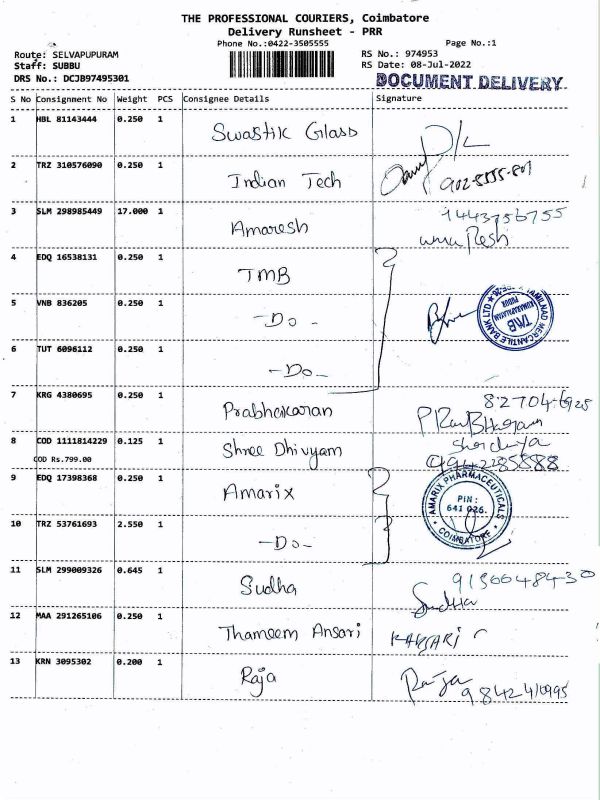 THE PROFESSIONAL COURIERS, Coimbatore
Delivery Runsheet - PRR
Phone No.:0422-3505555
Page No.:1
Route: SELVAPUPURAM
RS No.: 974953
Staff: SUBBU
RS Date: 08-Jul-2022
DRS No.: DCJB97495301
DOCUMENT DELIVERY
S No Consignment No Weight PCS Consignee Details Signature
1 HBL 81143444 0.250 1 Swastik Glass
2 TRZ 310576090 0.250 1 Indian Tech
3 SLM 298985449 17.000 1 Amaresh 9443756755
4 EDQ 16538131 0.250 1 TMB
5 VNB 836205 0.250 1 -Do-
TAMILNAD MERCANTILE BANK LTD
TMB
6 TUT 6096112 0.250 1 -Do-
7 KRG 4380695 0.250 1 Prabhakaran 82704-6925
8 COD 1111814229 0.125 1 Shree Dhivyam
COD Rs.799.00 9942285588
9 EDQ 17398368 0.250 1 Amarix
AMARIX PHARMACEUTICALS
PIN :
641 026.
COIMBATORE
10 TRZ 53761693 2.550 1 -Do-
11 SLM 299009326 0.645 1 Sudha 91566484-30
Sudha
12 MAA 291265106 0.250 1 Thameem Ansari
13 KRN 3095302 0.200 1 Raja Raja
9842410995